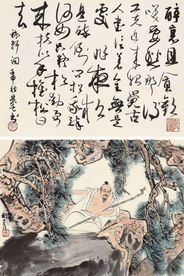 醉裏且貪歡
笑要愁那得
工夫近來始覺古
人書信著全無是
處昨夜松
邊醉倒問松我醉
何如只疑松動要
來扶以手推松曰
去
稼軒詞